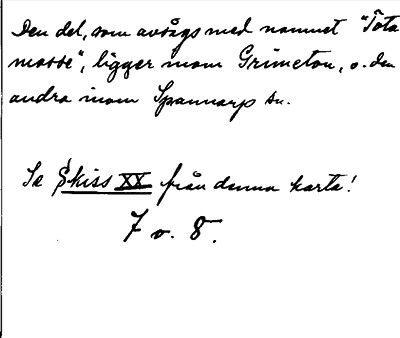 Den del, som avsågs med namnet "Tota
mosse", ligger inom Grimeton, o. den
andra inom Spannarp sn.
Se Skiss XX från denna karta!
7 o. 8.